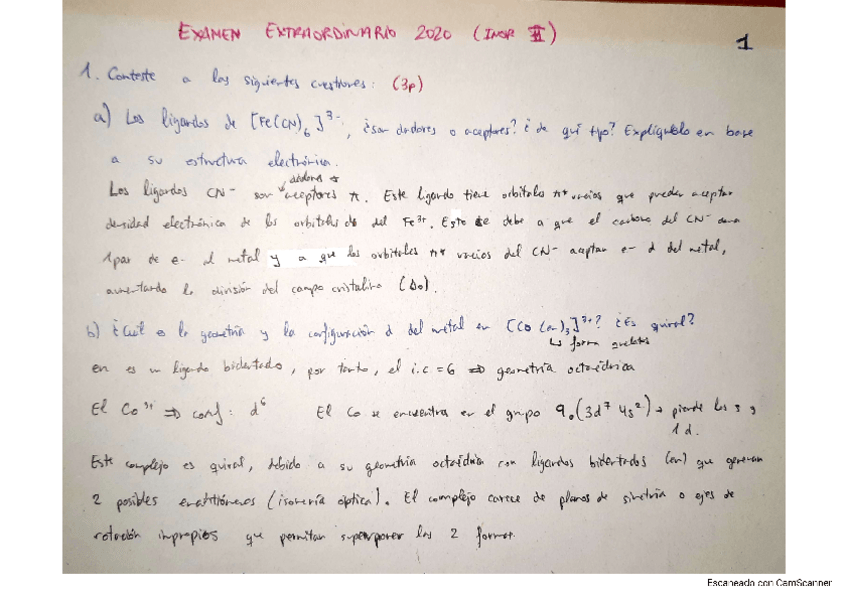 EXAMEN EXTRAORDINARIO 2020 (INOR II)
1
1. Conteste a las siguientes cuestiones: (3p)
a) Los ligandos de [Fe(CN)6]3-, ¿son dadores o aceptores? ¿de qué tipo? Explíquelo en base
a su estructura electrónica.
dadores σ
Los ligandos CN- son aceptores π. Este ligando tiene orbitales π* vacíos que pueden aceptar
densidad electrónica de los orbitales d del Fe3+. Esto se debe a que el carbono del CN- dona
1 par de e- al metal y a que los orbitales π* vacíos del CN- aceptan e- d del metal,
aumentando la división del campo cristalino (Δo).
b) ¿Cuál es la geometría y la configuración d del metal en [Co(en)3]3+? ¿Es quiral?
↳ forma quelatos
en es un ligando bidentado, por tanto, el i.c = 6 ⇒ geometría octaédrica
El Co3+ ⇒ conf: d6 El Co se encuentra en el grupo 9. (3d7 4s2) → pierde los s y
1 d.
Este complejo es quiral, debido a su geometría octaédrica con ligandos bidentados (en) que generan
2 posibles enantiómeros (isomería óptica). El complejo carece de planos de simetría o ejes de
rotación impropios que permitan superponer las 2 formas.
Escaneado con CamScanner